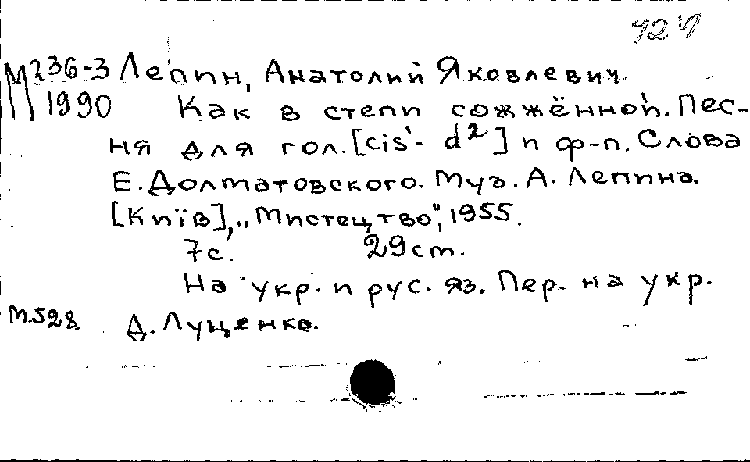 424
М 236-3 Лепин, Анатолий Яковлевич.
1990 Как в степи сожжённой. Пес-
ня для гол. [cis¹- d²] и ф-п. Слова
Е. Долматовского. Муз. А. Лепина.
[Київ], „Мистецтво", 1955.
7с. 29 cm.
На укр. и рус. яз. Пер. на укр.
М528 Д. Луценко.